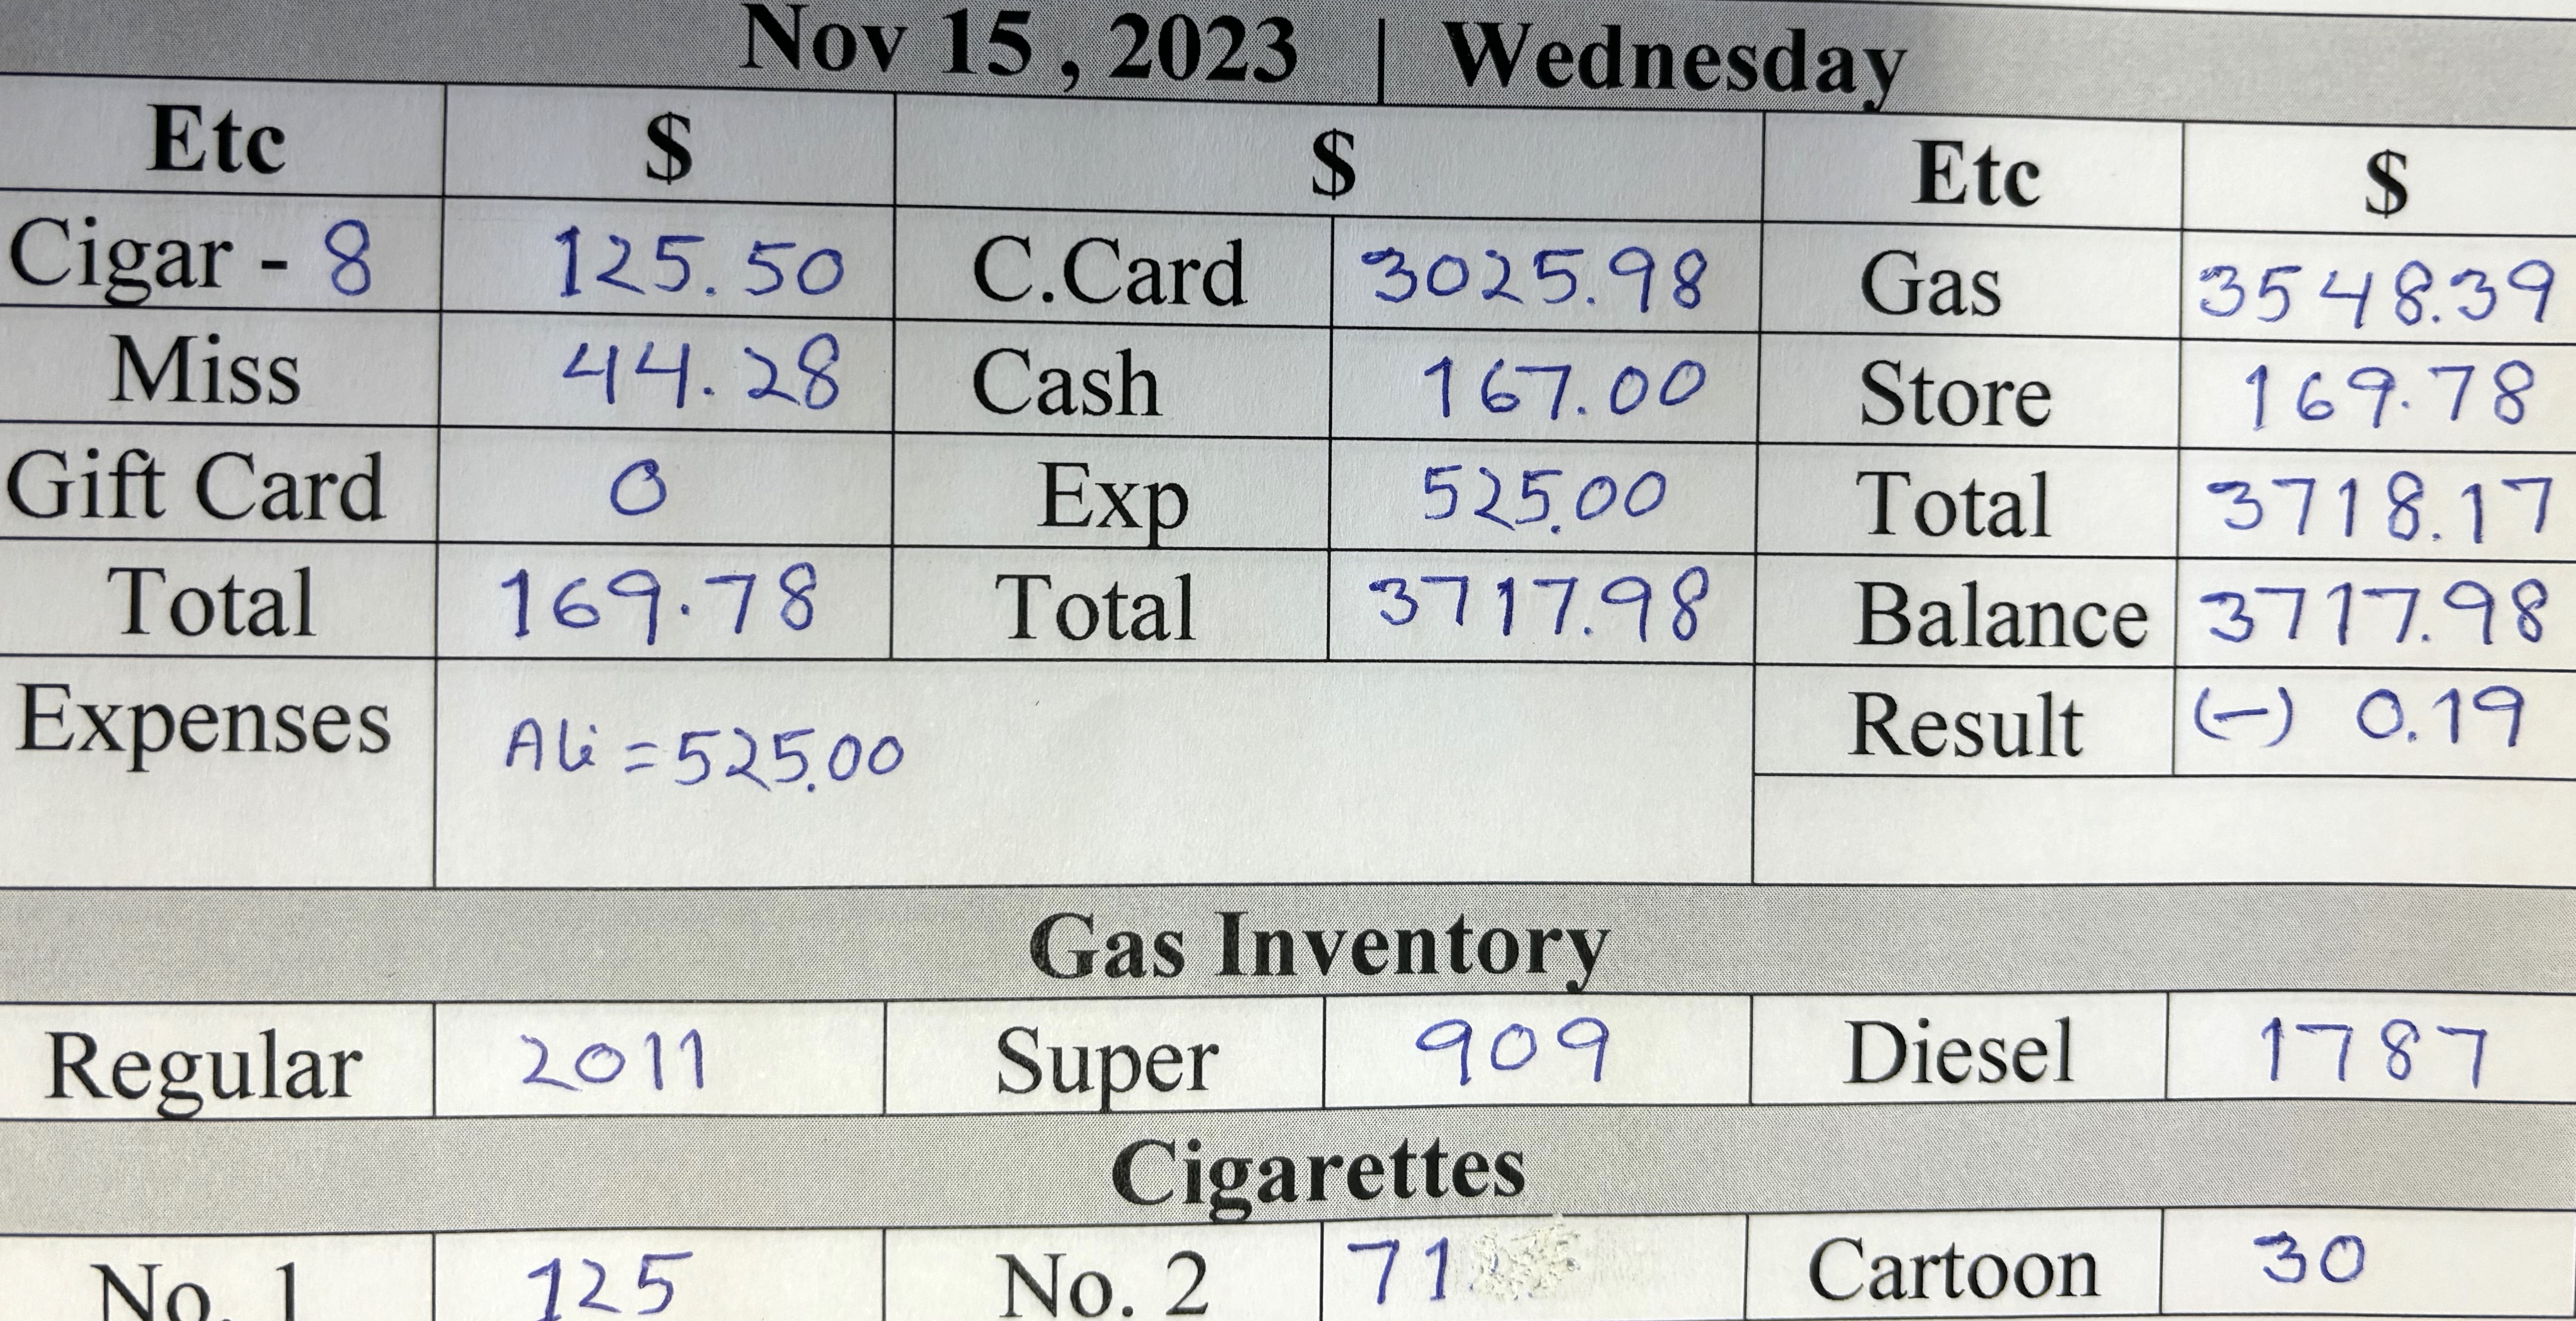 Nov 15, 2023 | Wednesday
Etc $ $ Etc $
Cigar - 8 125.50 C.Card 3025.98 Gas 3548.39
Miss 44.28 Cash 167.00 Store 169.78
Gift Card 0 Exp 525.00 Total 3718.17
Total 169.78 Total 3717.98 Balance 3717.98
Expenses Ali = 525.00 Result (-) 0.19
Gas Inventory
Regular 2011 Super 909 Diesel 1787
Cigarettes
No. 1 125 No. 2 71 Cartoon 30